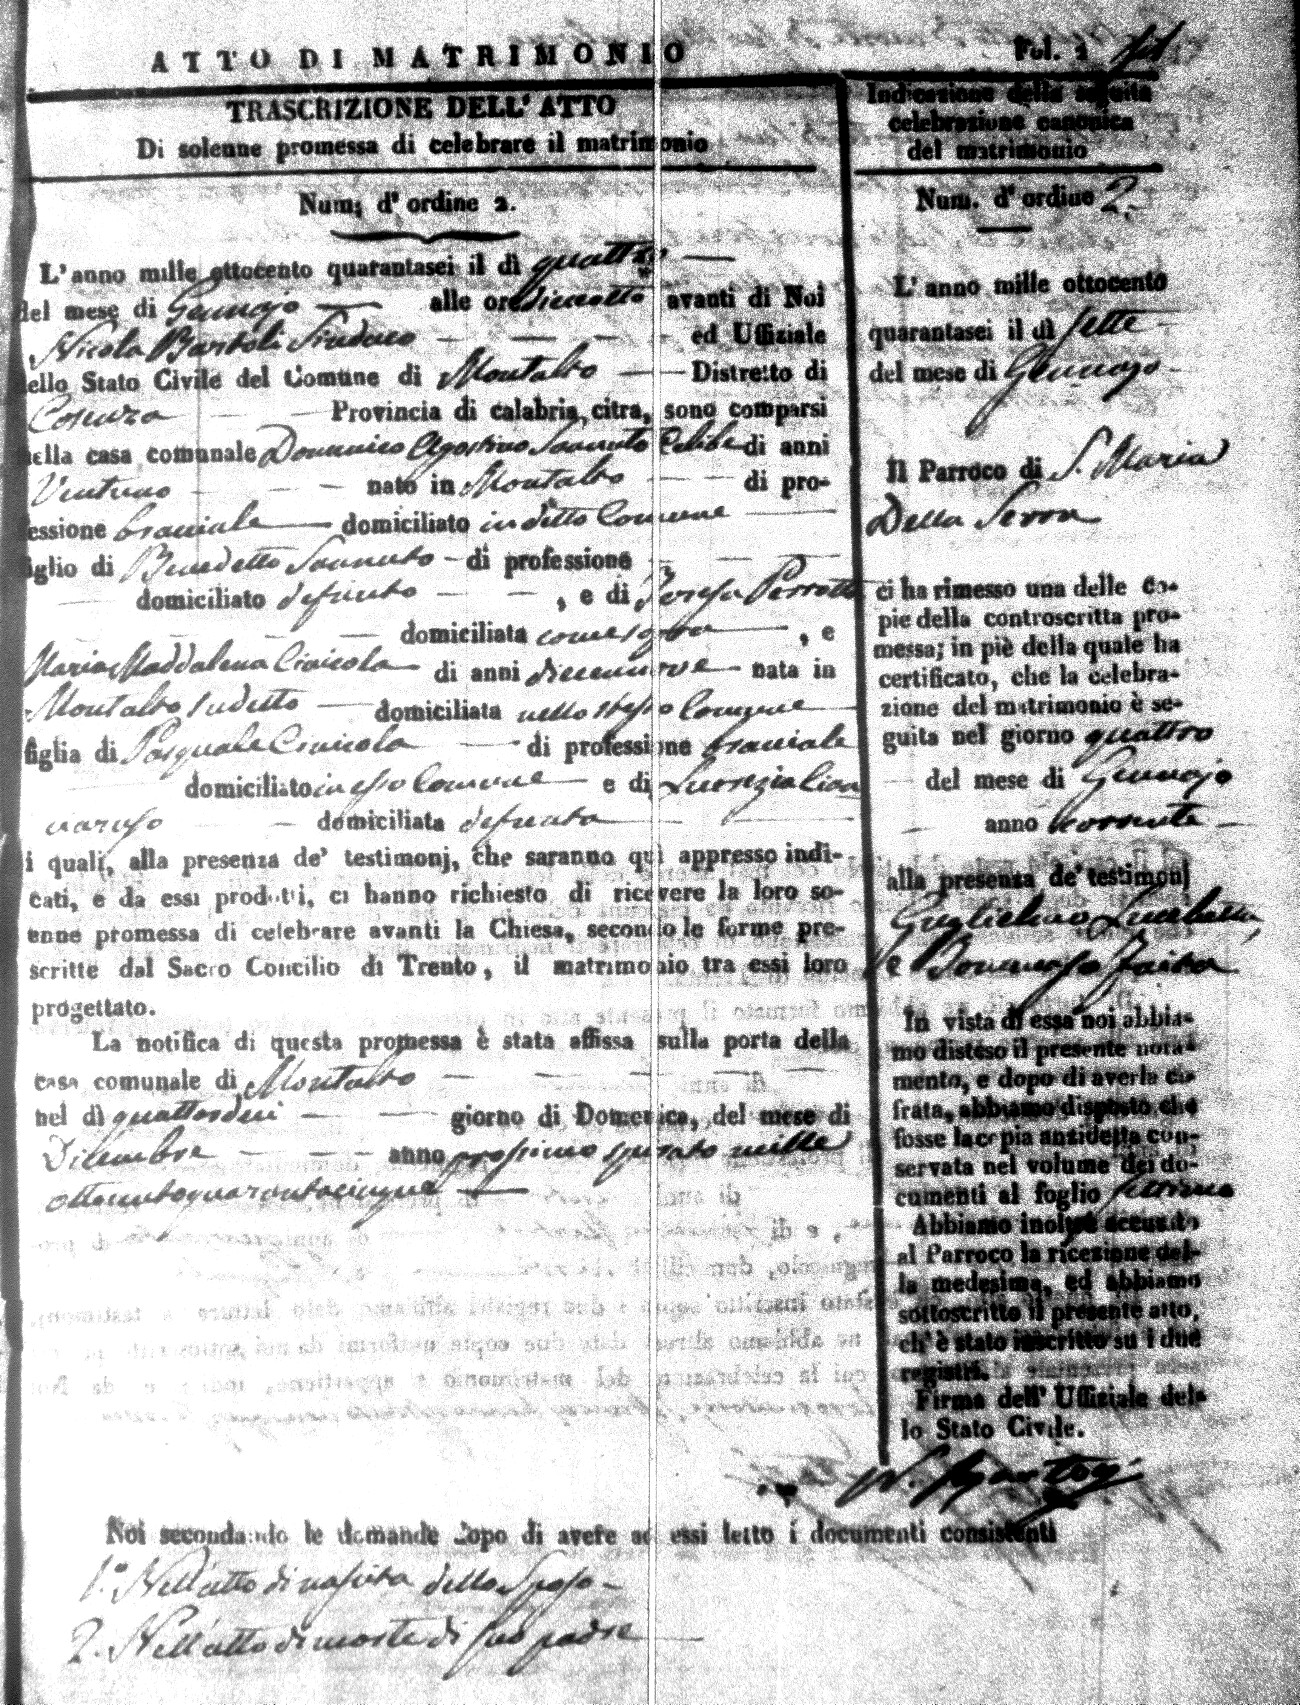 ATTO DI MATRIMONIO
Fol. 2
TRASCRIZIONE DELL' ATTO
Di solenne promessa di celebrare il matrimonio
Num. d' ordine 2.
L'anno mille ottocento quarantasei il dì quattro
del mese di Gennajo alle ore diciotto avanti di Noi
Nicola Bartoli Sindaco ed Uffiziale
dello Stato Civile del Comune di Montalto Distretto di
Cosenza Provincia di calabria citra, sono comparsi
nella casa comunale Domenico Agostino Sannuto Celibe di anni
Ventuno nato in Montalto di pro-
fessione bracciale domiciliato in detto Comune
figlio di Benedetto Sannuto di professione
domiciliato defunto , e di Teresa Perrotta
domiciliata come sopra , e
Maria Maddalena di anni diecinnove nata in
Montalto sudetto domiciliata nello stesso Comune
figlia di Pasquale di professione bracciale
domiciliato in esso Comune e di Lucrezia
domiciliata defunta
i quali, alla presenza de' testimonj, che saranno qui appresso indi-
cati, e da essi prodotti, ci hanno richiesto di ricevere la loro so-
enne promessa di celebrare avanti la Chiesa, secondo le forme pre-
scritte dal Sacro Concilio di Trento, il matrimonio tra essi loro
progettato.
La notifica di questa promessa è stata affissa sulla porta della
casa comunale di Montalto
nel dì quattordici giorno di Domenica, del mese di
Dicembre anno prossimo spirato mille
ottocentoquarantacinque
Indicazione della seguita
celebrazione canonica
del matrimonio
Num. d' ordine 2.
L' anno mille ottocento
quarantasei il dì sette
del mese di Gennajo
Il Parroco di S. Maria
Della Serra
ci ha rimesso una delle co-
pie della controscritta pro-
messa; in piè della quale ha
certificato, che la celebra-
zione del matrimonio è se-
guita nel giorno quattro
del mese di Gennajo
anno corrente
alla presenza de' testimonj
Guglielmo
e
In vista di essa noi abbia-
mo disteso il presente nota-
mento, e dopo di averla ci-
frata, abbiamo disposto che
fosse la copia anzidetta con-
servata nel volume dei do-
cumenti al foglio settimo
Abbiamo inoltre accusato
al Parroco la ricezione del-
la medesima, ed abbiamo
sottoscritto il presente atto,
ch' è stato inscritto su i due
registri.
Firma dell' Uffiziale del-
lo Stato Civile.
N. Bartoli
Noi secondando le domande dopo di avere ad essi letto i documenti consistenti
1.° Nell'atto di nascita dello Sposo
2. Nell'atto di morte di suo padre